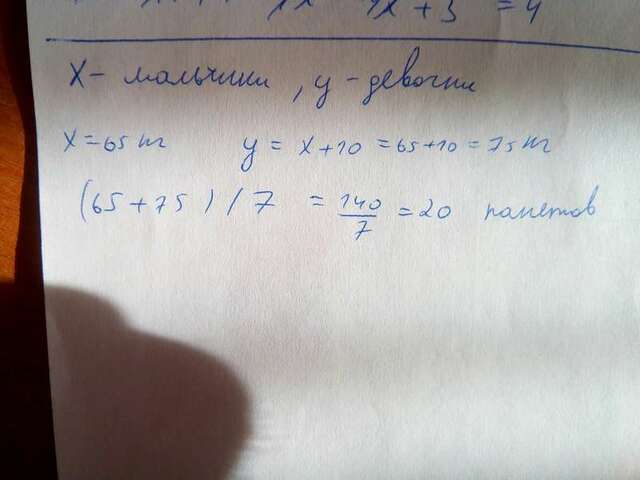 4x + 3 = 4
x - мальчики , y - девочки
x = 65 кг y = x + 10 = 65 + 10 = 75 кг
(65 + 75) / 7 = 140/7 = 20 пакетов